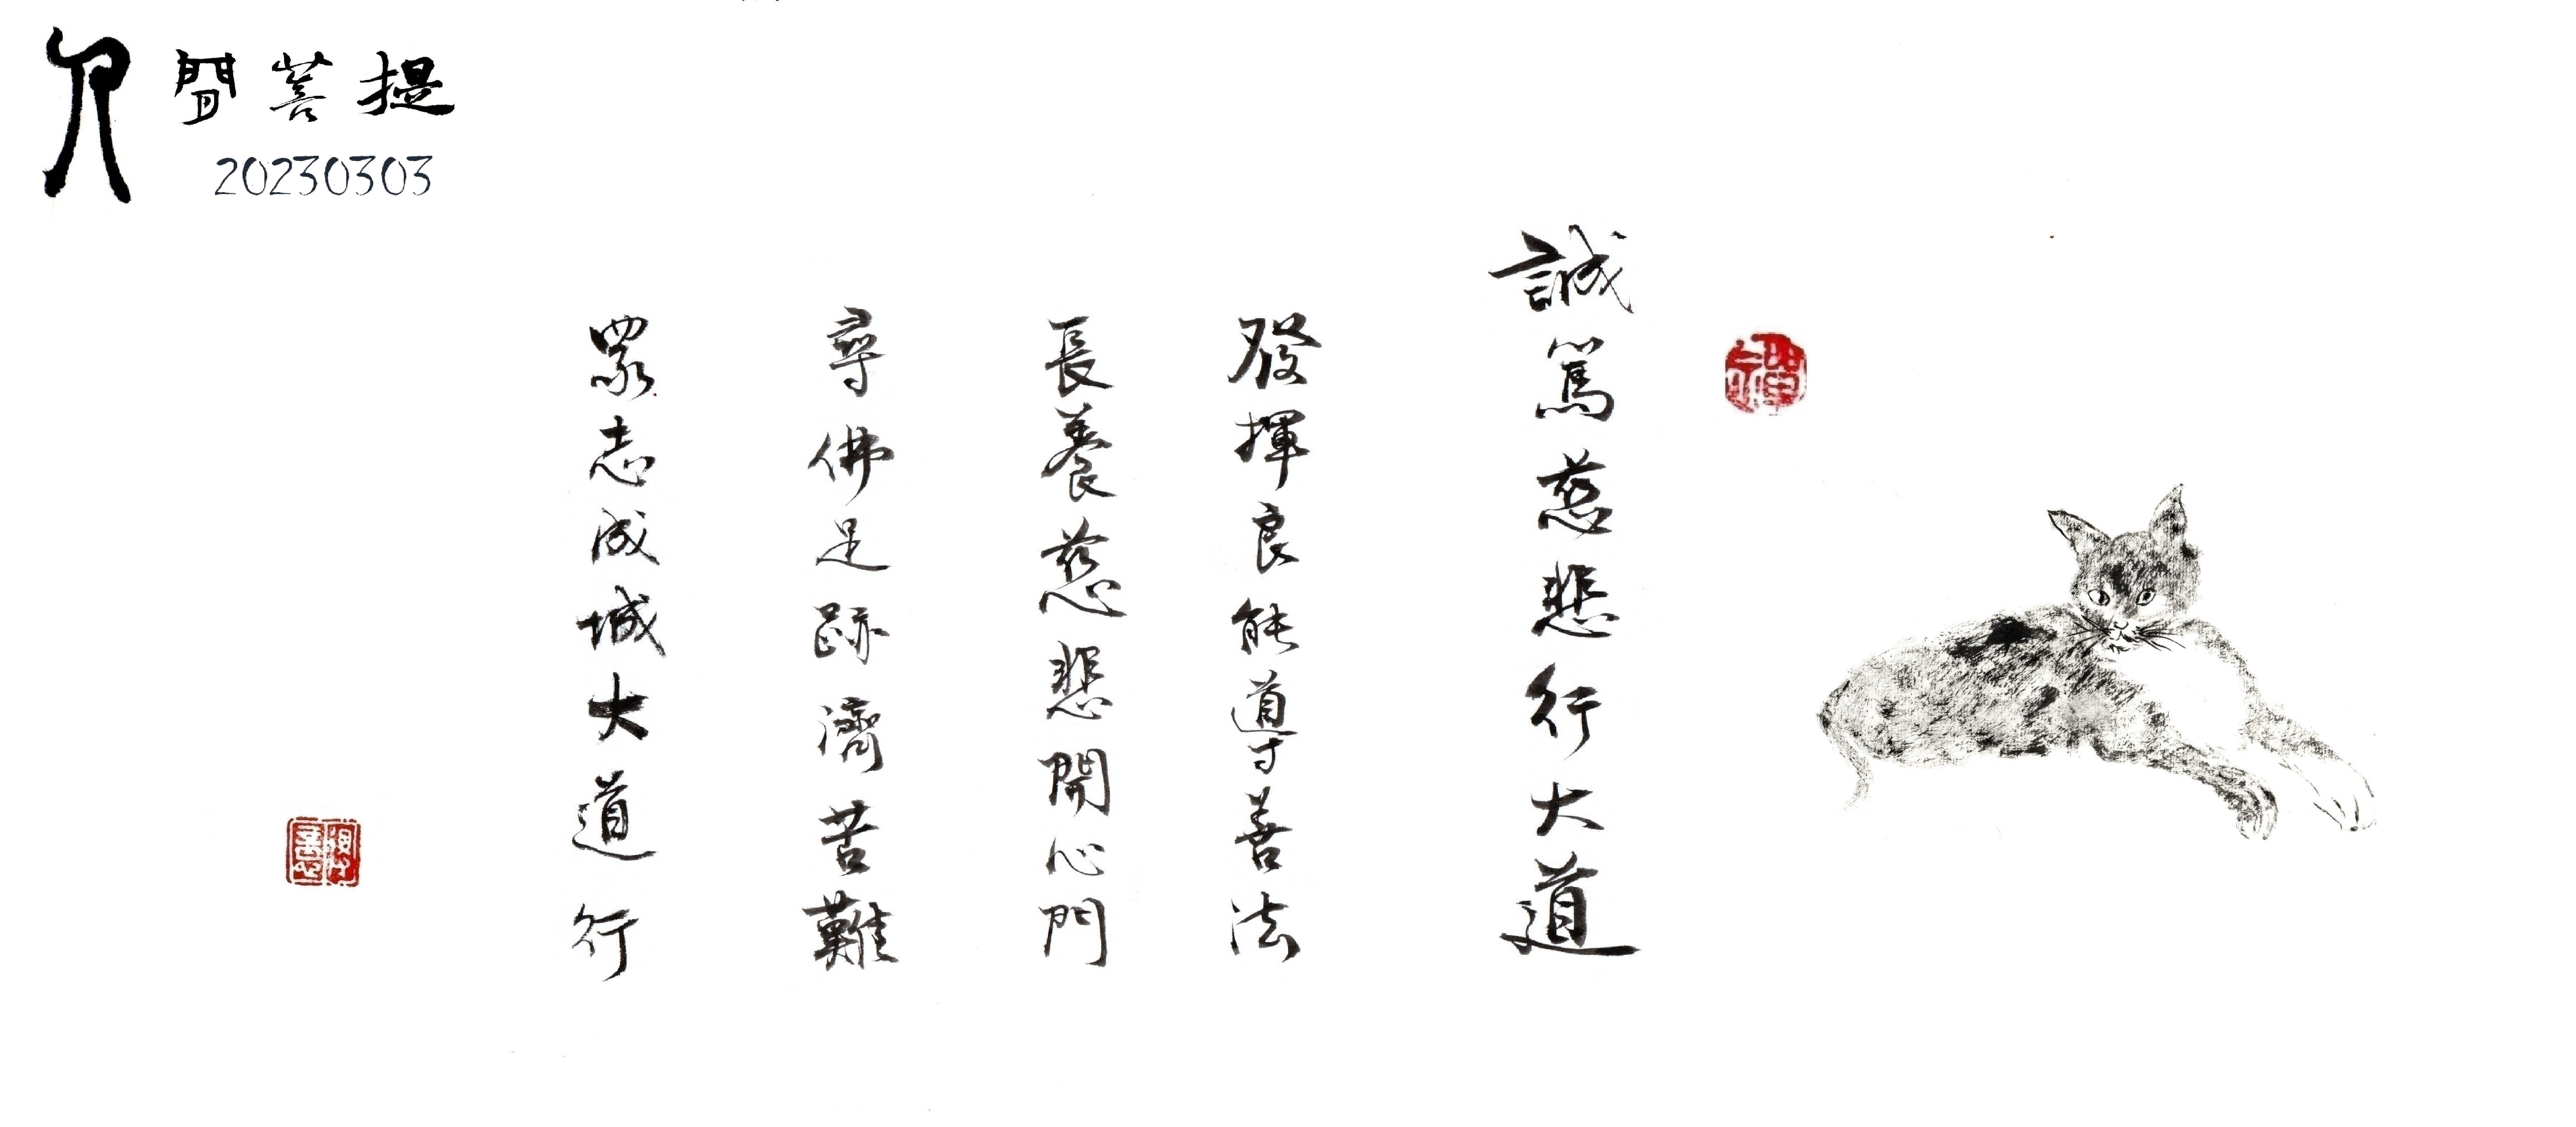 人間菩提
20230303
誠篤慈悲行大道
發揮良能導善法
長養慈悲開心門
尋佛足跡濟苦難
眾志成城大道行